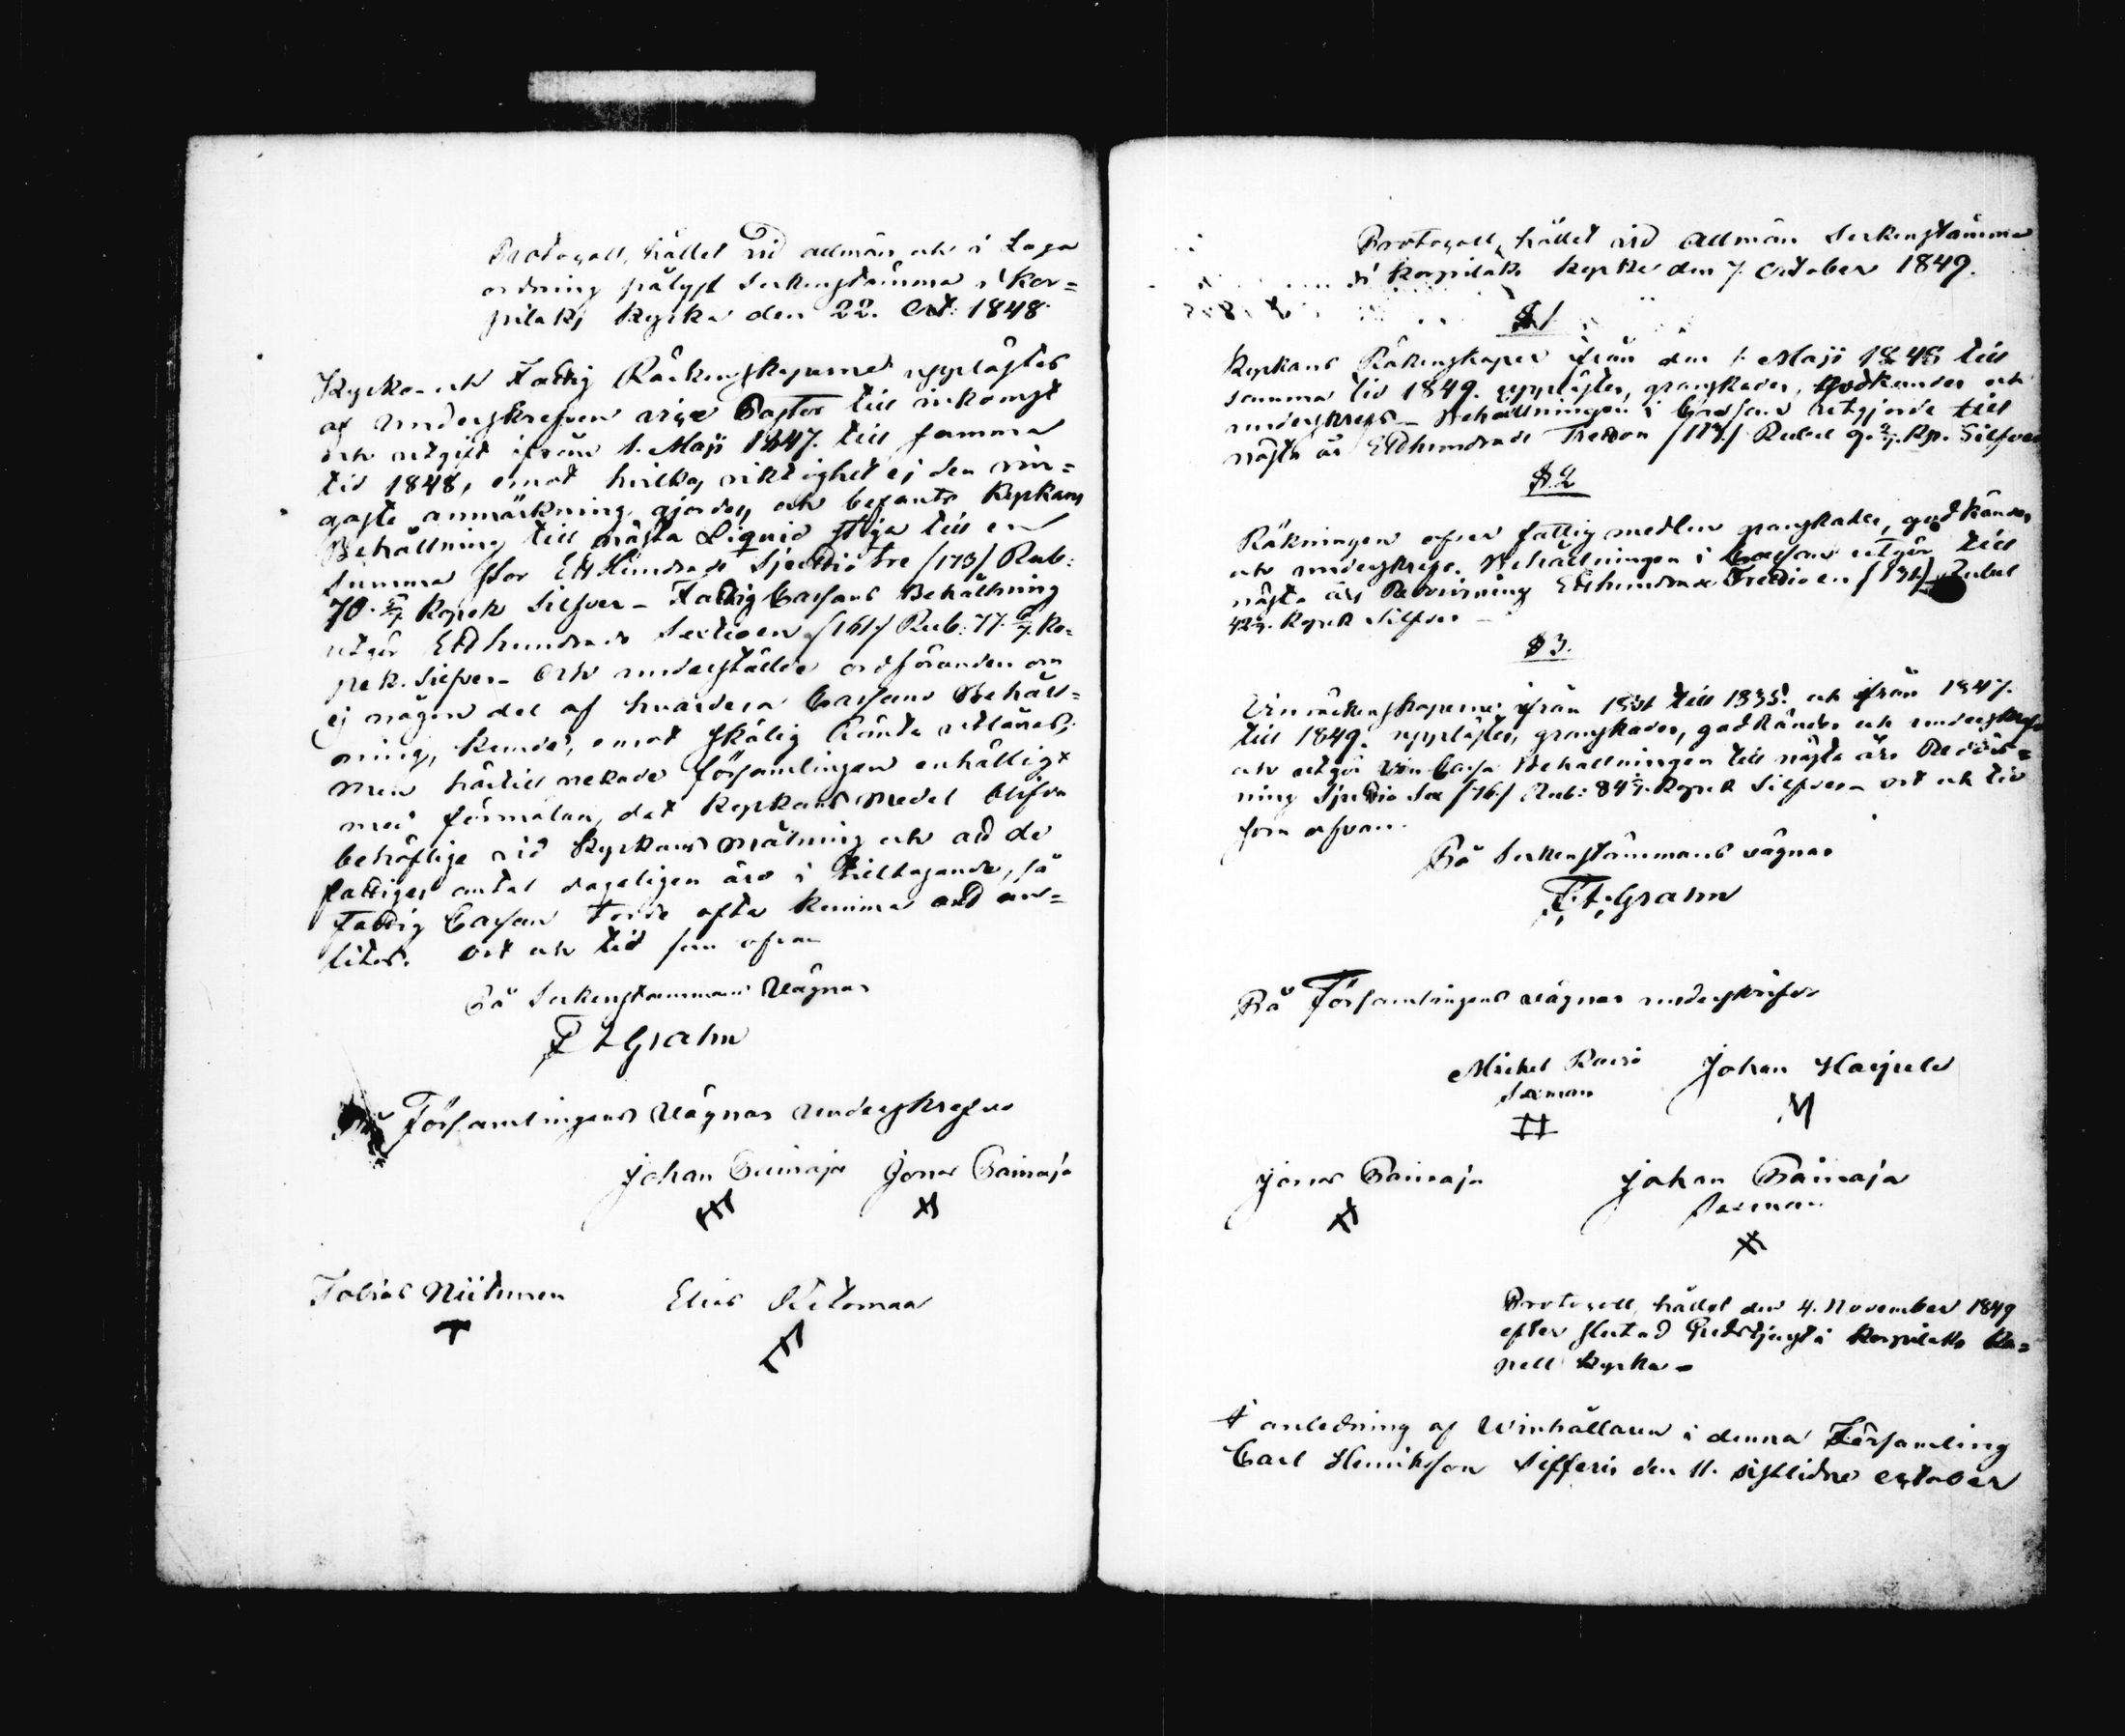 Protocoll, hållet vid allmän och i Laga
ordning pålyst Sockenstämma i Kor=
pilaks kyrka den 22. Oct: 1848.
Kyrko- och Fattig Räkenskaperne upplästes
af underskrefven vice Pastor till inkomst
och utgift ifrån 1. Maji 1847. till samma
tid 1848, emot hvilkas riktighet ej den rin=
gaste anmärkning gjordes, och befants Kyrkans
Behållning till nästa Liquid stiga till en
summa stor Ett Hundrade Sjuttio tre /173/ Rub:
70 5/7 Kopek Silfver_ Fattig Cassans Behållning
utgör Etthundrade Sextioen /161/ Rub: 77 6/7 Ko=
pek. Silfver_ Och understälde ordföranden om
ej någon del af hvardera Cassans Behåll=
ning, kunde, emot skälig Ränta utlånas;
men härtill nekade församlingen enhälligt
med förmälan, det kyrkans medel blifva
behöflige vid kyrkans målning och att de
fattiges antal dageligen äro i tilltagande, så
Fattig Cassan torde ofta komma att an=
litas. Ort och tid som ofvan
På Sockenstämmans Vägnar
F I Grahn
På Församlingens Vägnar underskrefvo
Johan Bainaja Jonas Bainaja
Tobias Niitunen Elias Kitomaa
Protocoll, hållet vid Allmän Sockenstämma
i Korpilaks kyrka den 7. October 1849.
§ 1.
Kyrkans Räkenskaper ifrån den 1. Maji 1848 till
samma tid 1849. upplästes, granskades, godkändes och
underskrefs_ Behållningen i Cassan utgjorde till
nästa år Etthundrade Tretton /113/ Rubel 9. 2/7. Kp. Silfver
§ 2
Räkningen öfver fattig medlen granskades, godkändes
och underskrefs. Behållningen i Cassan utgör till
nästa års Redovisning Etthundrade Trettioen /131/ Rubel
42 6/7. Kopek Silfver_
§ 3.
Vin räkenskaperne ifrån 1831 till 1835. och ifrån 1847.
till 1849. upplästes, granskades, godkändes och underskrefs
och utgör Vin Cassa Behållningen till nästa års Redovis=
ning Sjuttio Sex /76/ Rub: 84 2/7. Kopek Silfver_ ort och tid
som ofvan.
På Sockenstämmans vägnar
F. I. Grahn
På Församlingens vägnar underskrifva
Michel Johan
Sexman
Jonas Bainaja Johan Bainaja
Sexman
Protocoll, hållet den 4. November 1849
efter slutad Gudstjenst i Korpilaks Ka=
pell kyrka_
I anledning af Vinhållaren i denna Församling
Carl Henriksson Sifferis den 11. sistlidne october